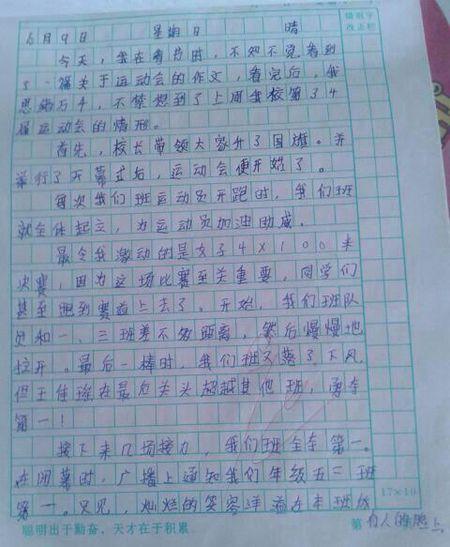 错别字
改正栏
6月9日 星期日 晴
今天，我在看书时，不知不觉看到
了一篇关于运动会的作文，看完后，我
思绪万千，不禁想到了上周我校第34
届运动会的情形。
首先，校长带领大家升了国旗。并
举行了开幕式后，运动会便开始了。
每次我们班运动员开跑时，我们班
就全体起立，为运动员加油助威。
最令我激动的是女子4×100米
决赛，因为这场比赛至关重要，同学们
甚至跑到赛道上去了。开始，我们班队
员和一、三班差不多距离，然后慢慢地
拉开。最后一棒时，我们班又落了下风，
但王佳 在最后关头超越其他班，勇夺
第一！
接下来几场接力，我们班全夺第一。
在闭幕时，广播上通知我们年级五三班
第一。只见，灿烂的笑容洋溢在本班级
17×16
聪明出于勤奋，天才在于积累
第 的人的脸上